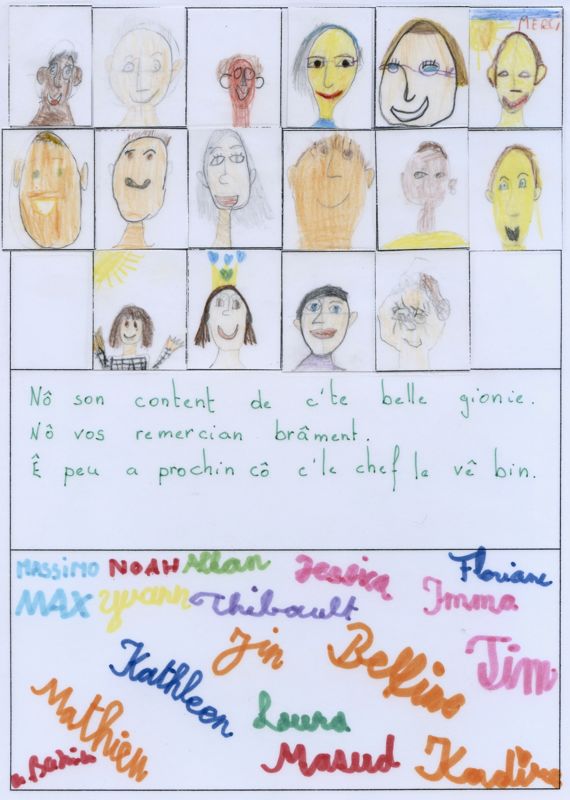 MERCI
Nô son content de c'te belle gionie.
Nô vos remercian brâment.
Ê peu a prochin cô c'le chef le vê bin.
MASSIMO NOAH Allan Jessica Floriane
MAX Yvann Thibault Imma
Jin Tim
Kathleen
Mathieu
Laura
Masud